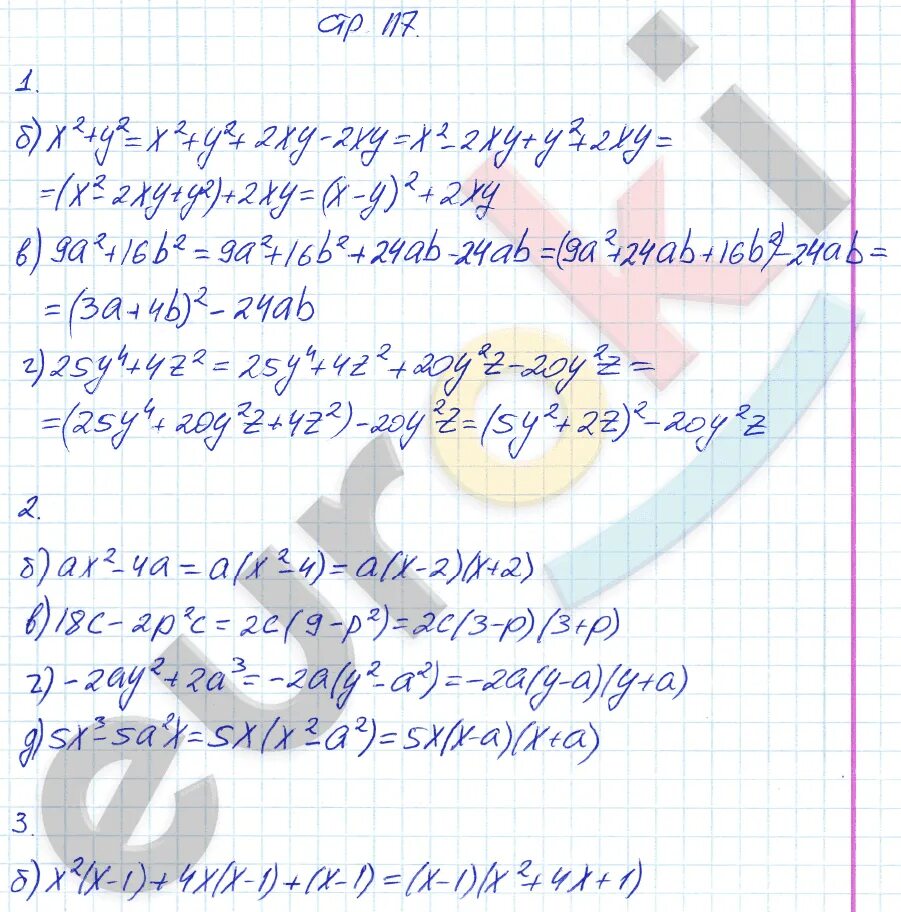 стр. 117.
1.
б) x²+y² = x²+y²+2xy-2xy = x²-2xy+y²+2xy=
=(x²-2xy+y²)+2xy=(x-y)²+2xy
в) 9a²+16b² = 9a²+16b²+24ab-24ab=(9a²+24ab+16b²)-24ab=
=(3a+4b)²-24ab
г) 25y⁴+4z² = 25y⁴+4z²+20y²z-20y²z=
=(25y⁴+20y²z+4z²)-20y²z=(5y²+2z)²-20y²z
2.
б) ax²-4a=a(x²-4)=a(x-2)(x+2)
в) 18c-2p²c=2c(9-p²)=2c(3-p)(3+p)
г) -2ay²+2a³=-2a(y²-a²)=-2a(y-a)(y+a)
д) 5x³-5a²x=5x(x²-a²)=5x(x-a)(x+a)
3.
б) x²(x-1)+4x(x-1)+(x-1)=(x-1)(x²+4x+1)
euroki